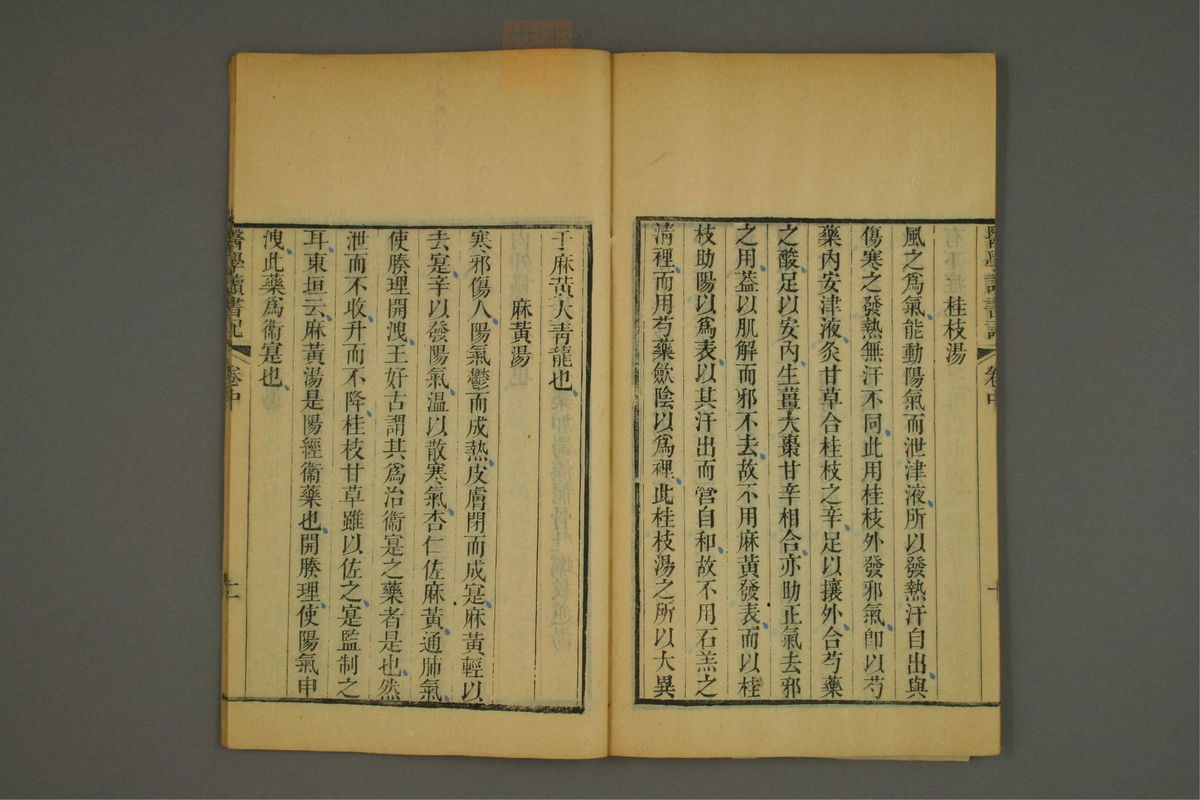 桂枝湯
風之爲氣能動陽氣而泄津液所以發熱汗自出與
傷寒之發熱無汗不同此用桂枝外發邪氣卽以芍
藥內安津液炙甘草合桂枝之辛足以攘外合芍藥
之酸足以安內生薑大棗甘辛相合亦助正氣去邪
之用葢以肌解而邪不去故不用麻黃發表而以桂
枝助陽以爲表以其汗出而營自和故不用石羔之
淸裡而用芍藥歛陰以爲裡此桂枝湯之所以大異
于麻黃大靑龍也
麻黃湯
寒邪傷人陽氣鬱而成熱皮膚閉而成寔麻黃輕以
去寔辛以發陽氣温以散寒氣杏仁佐麻黃通肺氣
使腠理開洩王好古謂其爲治衞寔之藥者是也然
泄而不收升而不降桂枝甘草雖以佐之寔監制之
耳東垣云麻黃湯是陽經衞藥也開腠理使陽氣申
洩此藥爲衞寔也
醫學讀書記
卷中